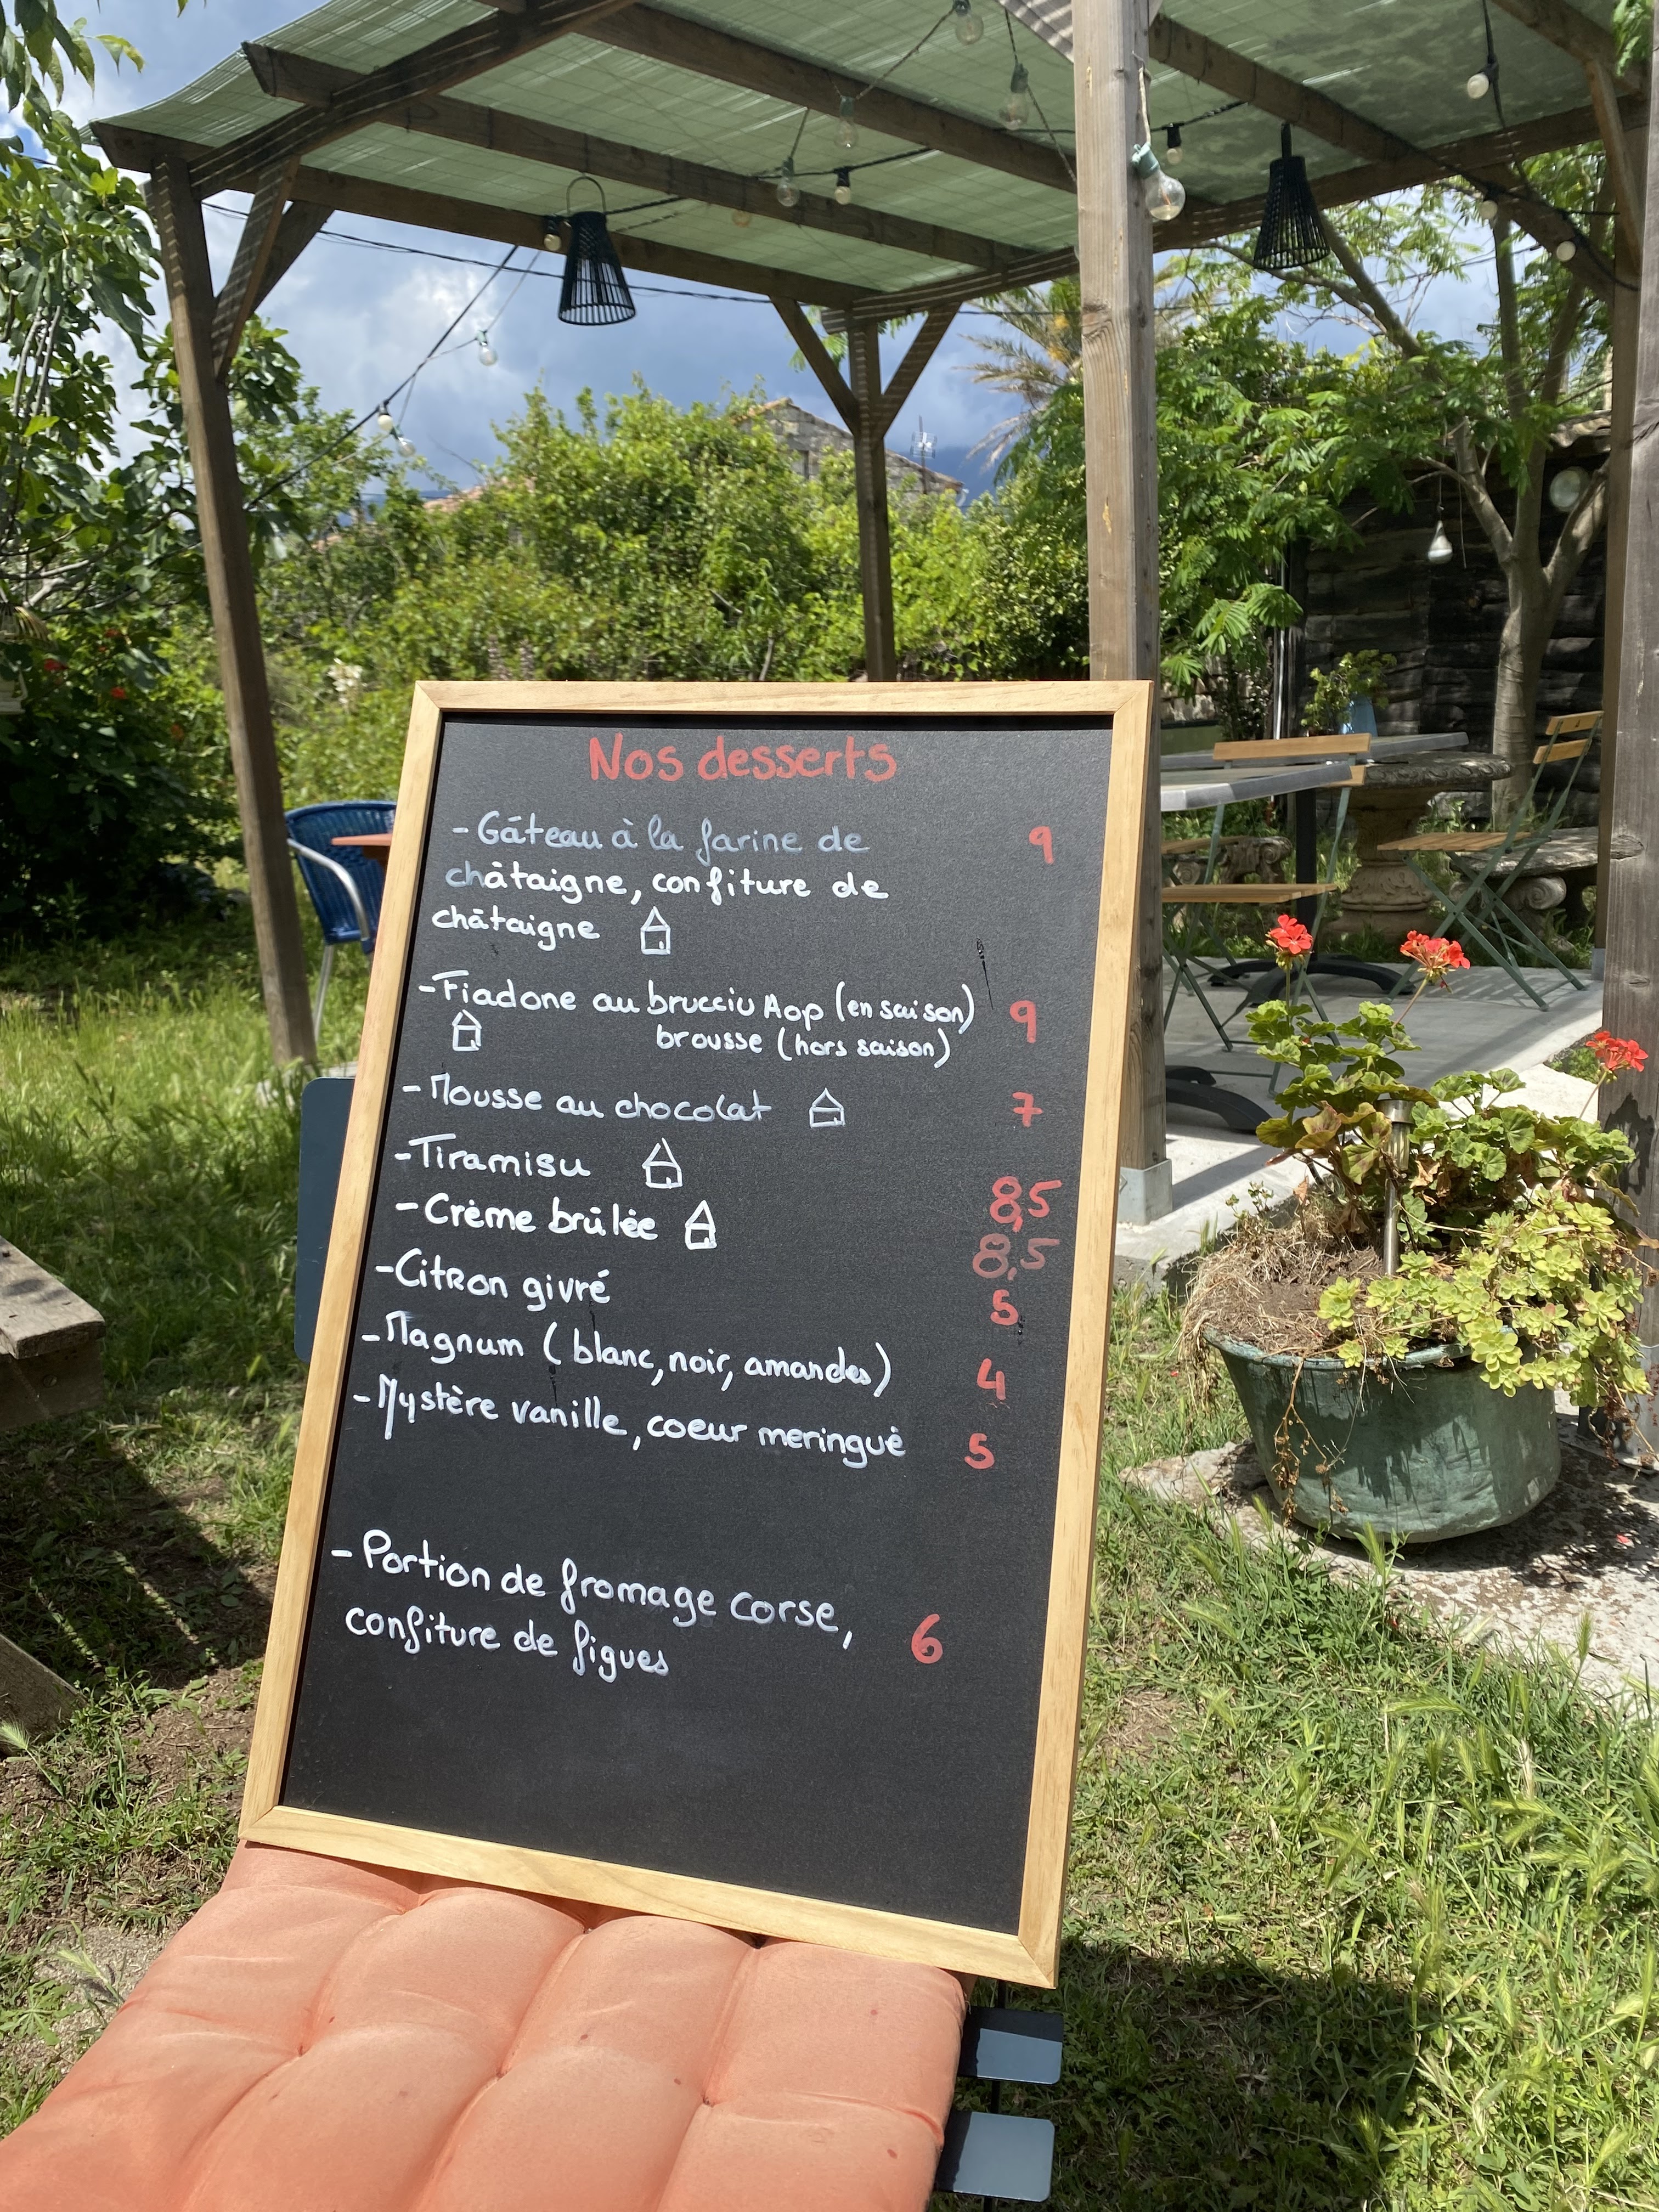 Nos desserts
- Gâteau à la farine de 9
châtaigne, confiture de
châtaigne
- Fiadone au brucciu Aop (en saison) 9
brousse (hors saison)
- Mousse au chocolat 7
- Tiramisu 8,5
- Crème brûlée 8,5
- Citron givré 5
- Magnum (blanc, noir, amandes) 4
- Mystère vanille, coeur meringué 5
- Portion de fromage corse, 6
confiture de figues